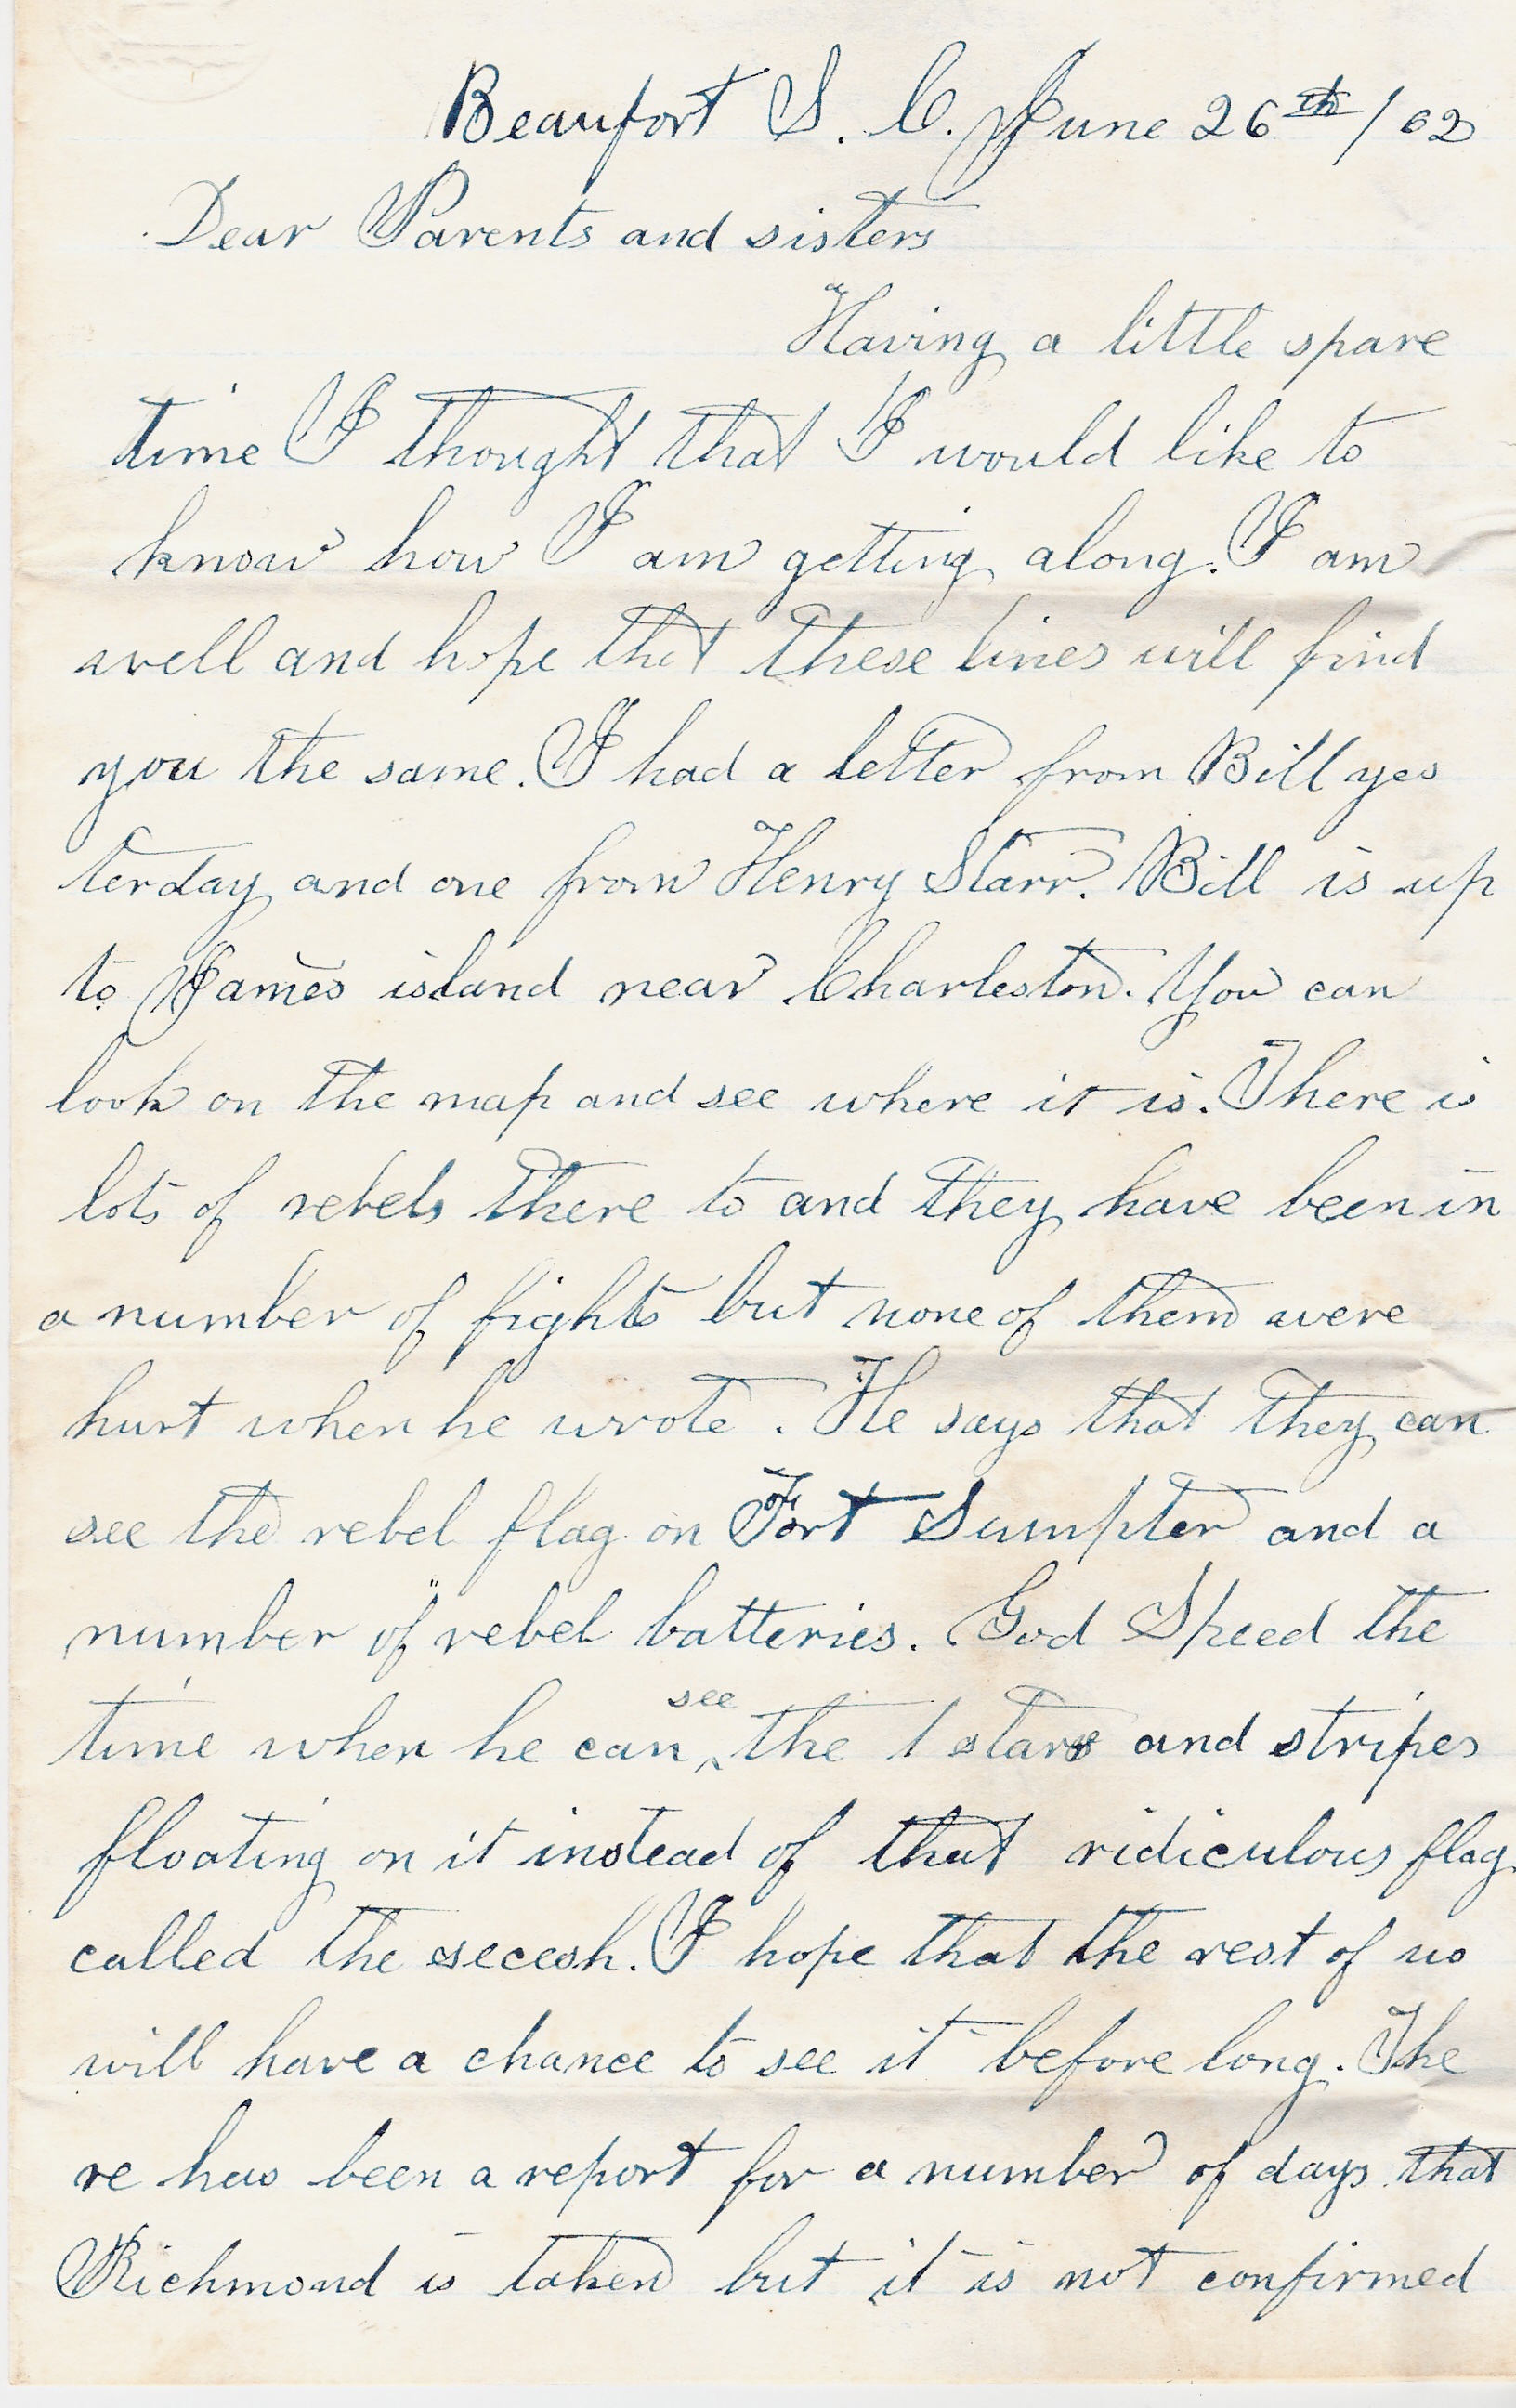 Beaufort S. C. June 26th / 62
Dear Parents and sisters
Having a little spare
time I thought that I would like to
know how I am getting along. I am
well and hope that these lines will find
you the same. I had a letter from Bill yes
terday and one from Henry Starr. Bill is up
to James island near Charleston. You can
look on the map and see where it is. There is
lots of rebels there to and they have been in
a number of fights but none of them were
hurt when he wrote. He says that they can
see the rebel flag on Fort Sumpter and a
number of rebel batteries. God Speed the
time when he can see the stars and stripes
floating on it instead of that ridiculous flag
called the secesh. I hope that the rest of us
will have a chance to see it before long. The
re has been a report for a number of days that
Richmond is taken but it is not confirmed